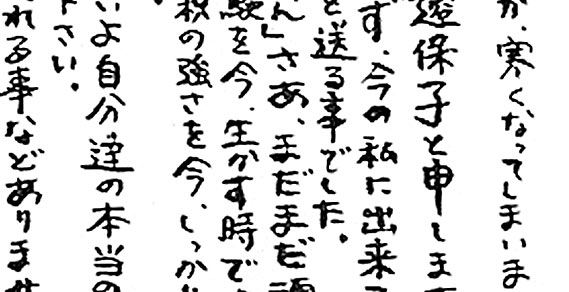 が、寒くなってしまいま
保子と申しま
ず、今の私に出来
を送る事でした。
ん」さあ、まだまだ
験を今、生かす時で
の強さを今、しっか
。
いよ自分達の本当の
さい。
れる事などありませ